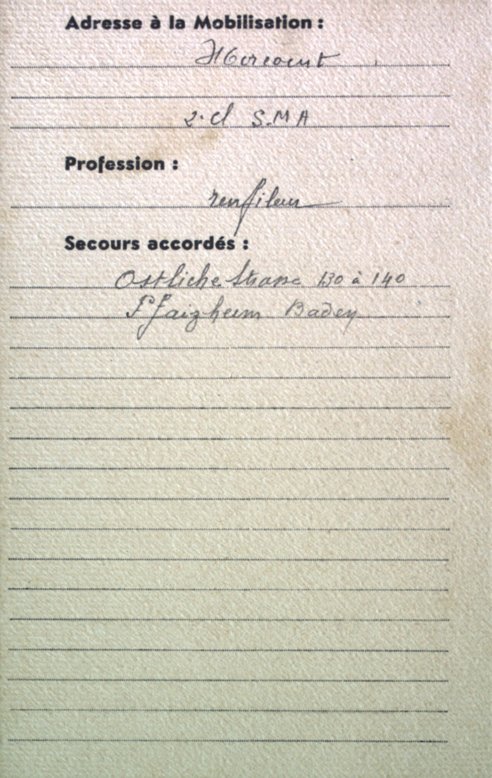 Adresse à la Mobilisation :
2e cl S.M.A
Profession :
renfileur
Secours accordés :
Ostliche Strasse 130 à 140
Baden